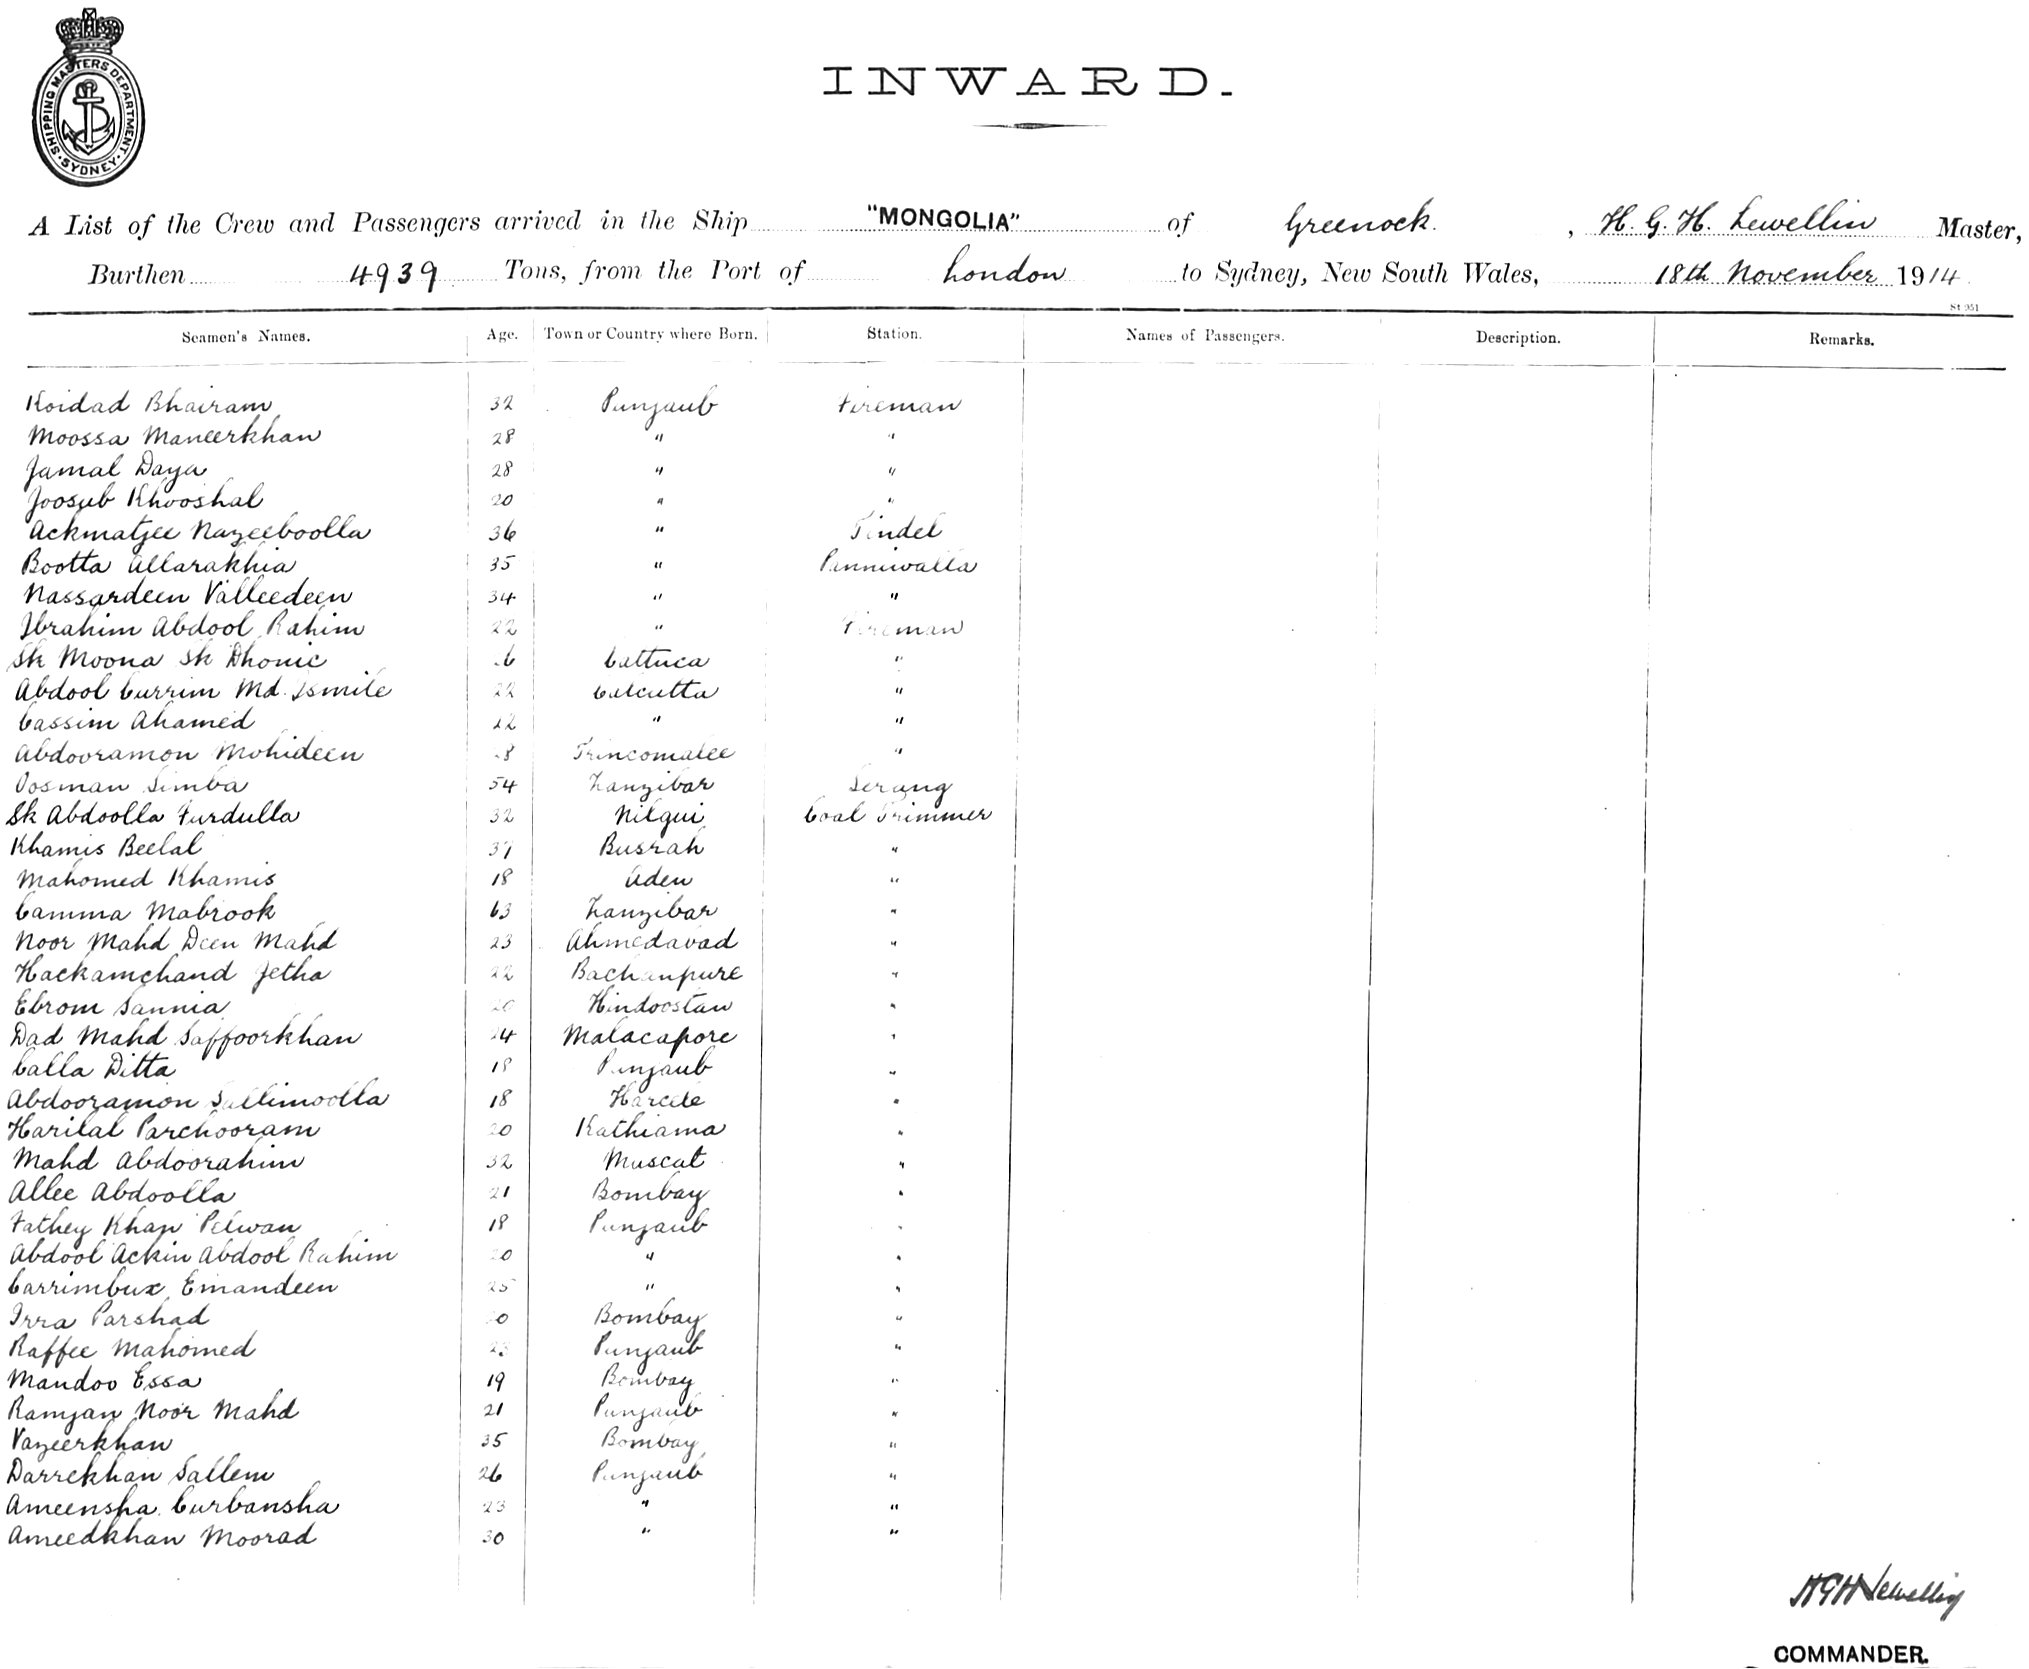 SHIPPING MASTERS DEPARTMENT. SYDNEY
INWARD.
A List of the Crew and Passengers arrived in the Ship "MONGOLIA" of Greenock, H. G. H. Lewellin Master,
Burthen 4939 Tons, from the Port of London to Sydney, New South Wales, 18th November 1914
St 951
Seamen's Names. Age. Town or Country where Born. Station. Names of Passengers. Description. Remarks.
Koidad Bhairam 32 Punjaub Fireman
Moossa Maneerkhan 28 " "
Jamal Daya 28 " "
Joosub Khooshal 20 " "
Ackmatjee Nazeeboolla 36 " Tindel
Bootta Allarakhia 35 " Panniwalla
Nassardeen Valleedeen 34 " "
Ibrahim Abdool Rahim 22 " Fireman
Sk Moona Sk Dhonie Cattuca "
Abdool Currim Md. Ismile 22 Calcutta "
Cassim Ahamed 22 " "
Abdooramon Mohideen Trincomalee "
Oosman Simba 54 Zanzibar Serang
Sk Abdoolla Furdulla 32 Nilgui Coal Trimmer
Khamis Beelal 37 Busrah "
Mahomed Khamis 18 Aden "
Camma Mabrook 63 Zanzibar "
Noor Mahd Deen Mahd 23 Ahmedavad "
Hackamchand Jetha 22 Bachanpure "
Ebrom Sannia 20 Hindoostan "
Dad Mahd Saffoorkhan 24 Malacapore "
Calla Ditta 18 Punjaub "
Abdooramon Sallimoolla 18 Harcele "
Harilal Parchooram 20 Kathiama "
Mahd Abdoorahim 32 Muscat "
Allee Abdoolla 21 Bombay "
Fathey Khan Pelwan 18 Punjaub "
Abdool Ackin Abdool Rahim 20 " "
Carrimbux Emandeen 25 " "
Irra Parshad Bombay "
Raffee Mahomed 23 Punjaub "
Mandoo Essa 19 Bombay "
Ramjan Noor Mahd 21 Punjaub "
Vazeerkhan 35 Bombay "
Darrekhan Sallem 26 Punjaub "
Ameensha Curbansha 23 " "
Ameedkhan Moorad 30 " "
HGH Lewellin
COMMANDER.